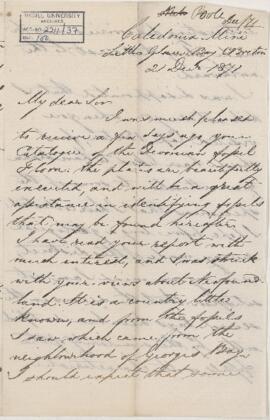 McGILL UNIVERSITY
ARCHIVES
ACC. NO. 2211/37
REF. 160
Poole Dec /71
Caledonia Mine
Little Glace Bay C Breton
21 Dec. 1871
My dear Sir
I was much pleased
to receive a few days ago, your
Catalogue of the Devonian fossil
Flora: the plates are beautifully
executed, and will be a great
assistance in identifying fossils
that may be found hereafter.
I have read your report with
much interest, and was struck
with your views about Newfound-
land. It is a country little
known, and from the fossils
I saw which came from the
neighbourhood of Georges Bay
I should expect that some